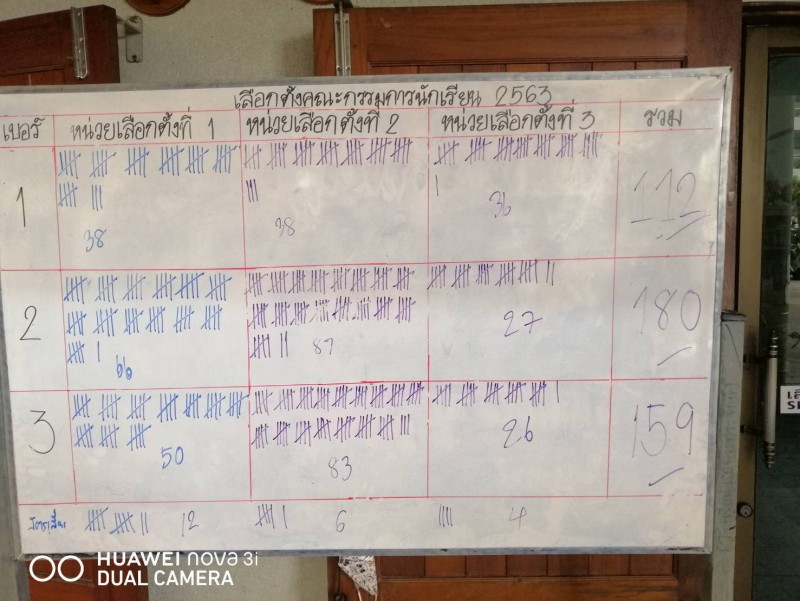 เลือกตั้งคณะกรรมการนักเรียน 2563
เบอร์ หน่วยเลือกตั้งที่ 1 หน่วยเลือกตั้งที่ 2 หน่วยเลือกตั้งที่ 3 รวม
1 38 38 36 112
2 66 87 27 180
3 50 83 26 159
บัตรเสีย 12 6 4
HUAWEI nova 3i
DUAL CAMERA